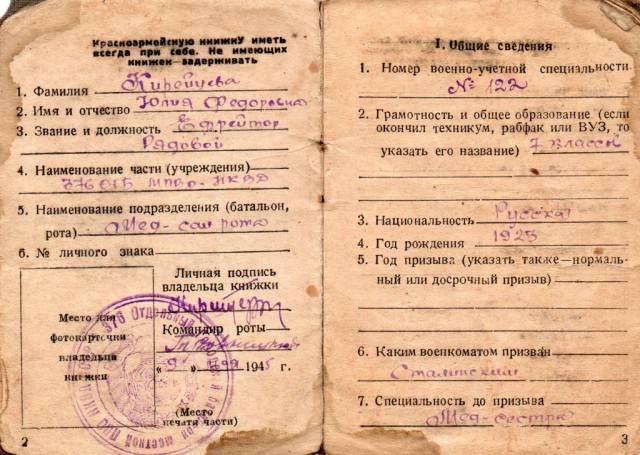 Красноармейскую книжку иметь
всегда при себе. Не имеющих
книжек—задерживать
1. Фамилия Кирейцева
2. Имя и отчество Юлия Федоровна
3. Звание и должность Ефрейтор
Рядовой
4. Наименование части (учреждения)
376 ОГБ МПВО-НКВД
5. Наименование подразделения (батальон,
рота) Мед-сан рота
6. № личного знака
Личная подпись
владельца книжки
Место для
фотокарточки
владельца
книжки
Командир роты
1945 г.
(Место
печати части)
376 Отдельный
2
I. Общие сведения
1. Номер военно-учетной специальности
№ 122
2. Грамотность и общее образование (если
окончил техникум, рабфак или ВУЗ, то
указать его название) 7 классов
3. Национальность Русская
4. Год рождения 1923
5. Год призыва (указать также—нормаль-
ный или досрочный призыв)
6. Каким военкоматом призван
Сталинским
7. Специальность до призыва
Мед-сестра
3